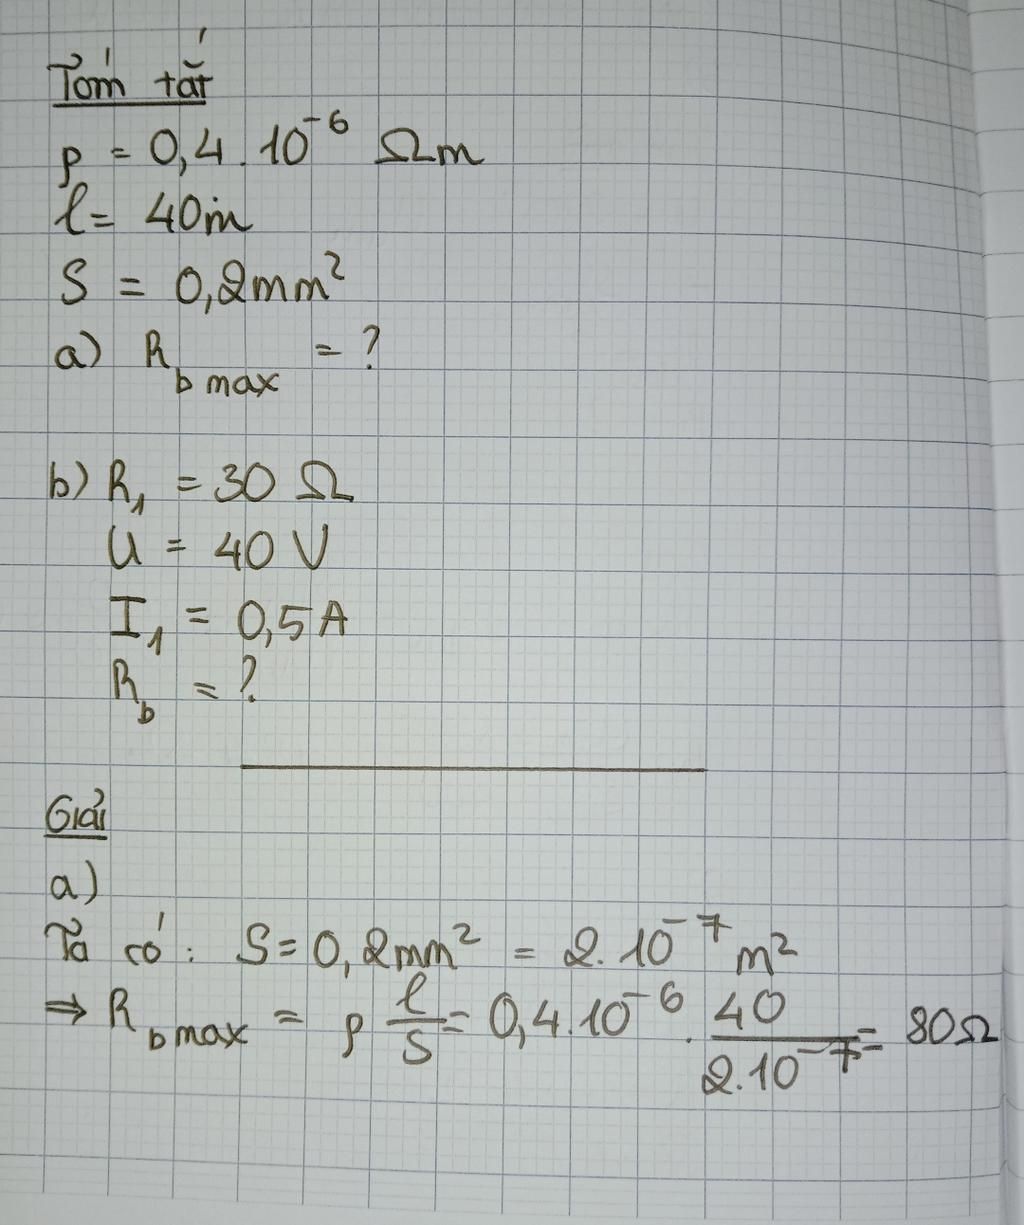 Tóm tắt
ρ = 0,4.10⁻⁶ Ωm
l = 40m
S = 0,2mm²
a) R_b max = ?
b) R₁ = 30 Ω
U = 40 V
I₁ = 0,5A
R_b = ?
Giải
a)
Ta có: S = 0,2mm² = 2.10⁻⁷ m²
⇒ R_b max = ρ l/S = 0,4.10⁻⁶ . 40/2.10⁻⁷ = 80Ω